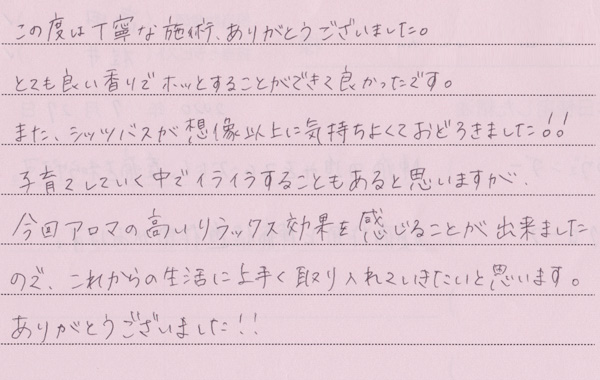 この度は丁寧な施術、ありがとうございました。
とても良い香りでホッとすることができて良かったです。
また、シッツバスが想像以上に気持ちよくておどろきました!!
子育てしていく中でイライラすることもあると思いますが、
今回アロマの高いリラックス効果を感じることが出来ました
ので、これからの生活に上手く取り入れていきたいと思います。
ありがとうございました!!